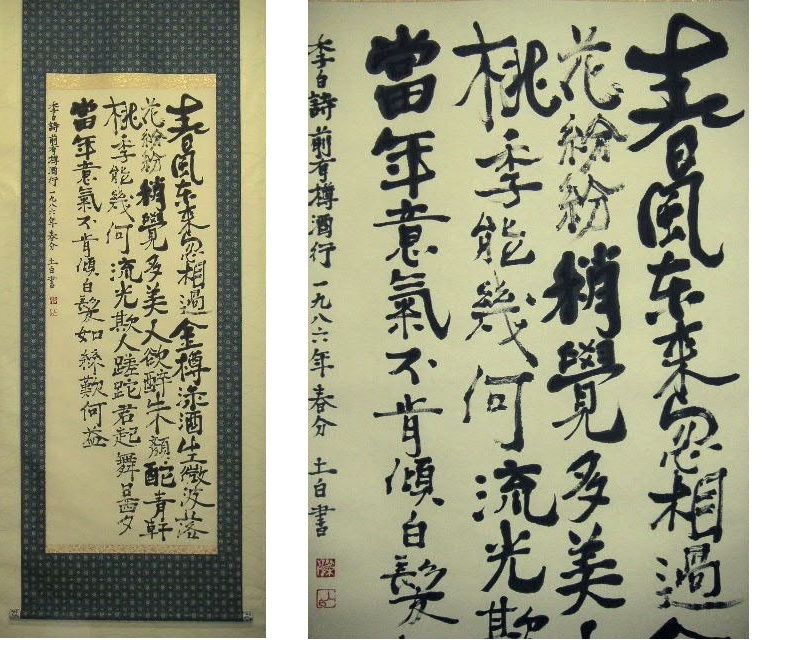 春風东来忽相過金樽渌酒生微波落
花紛紛稍覺多美人欲醉朱顏酡青軒
桃李能幾何流光欺人蹉跎君起舞日西夕
當年意氣不肯傾白髮如絲歎何益
李白詩前有樽酒行 一九八六年春分 土白書
春風东来忽相過金
花紛紛稍覺多美
桃李能幾何流光欺
當年意氣不肯傾白髮
李白詩前有樽酒行 一九八六年春分 土白書